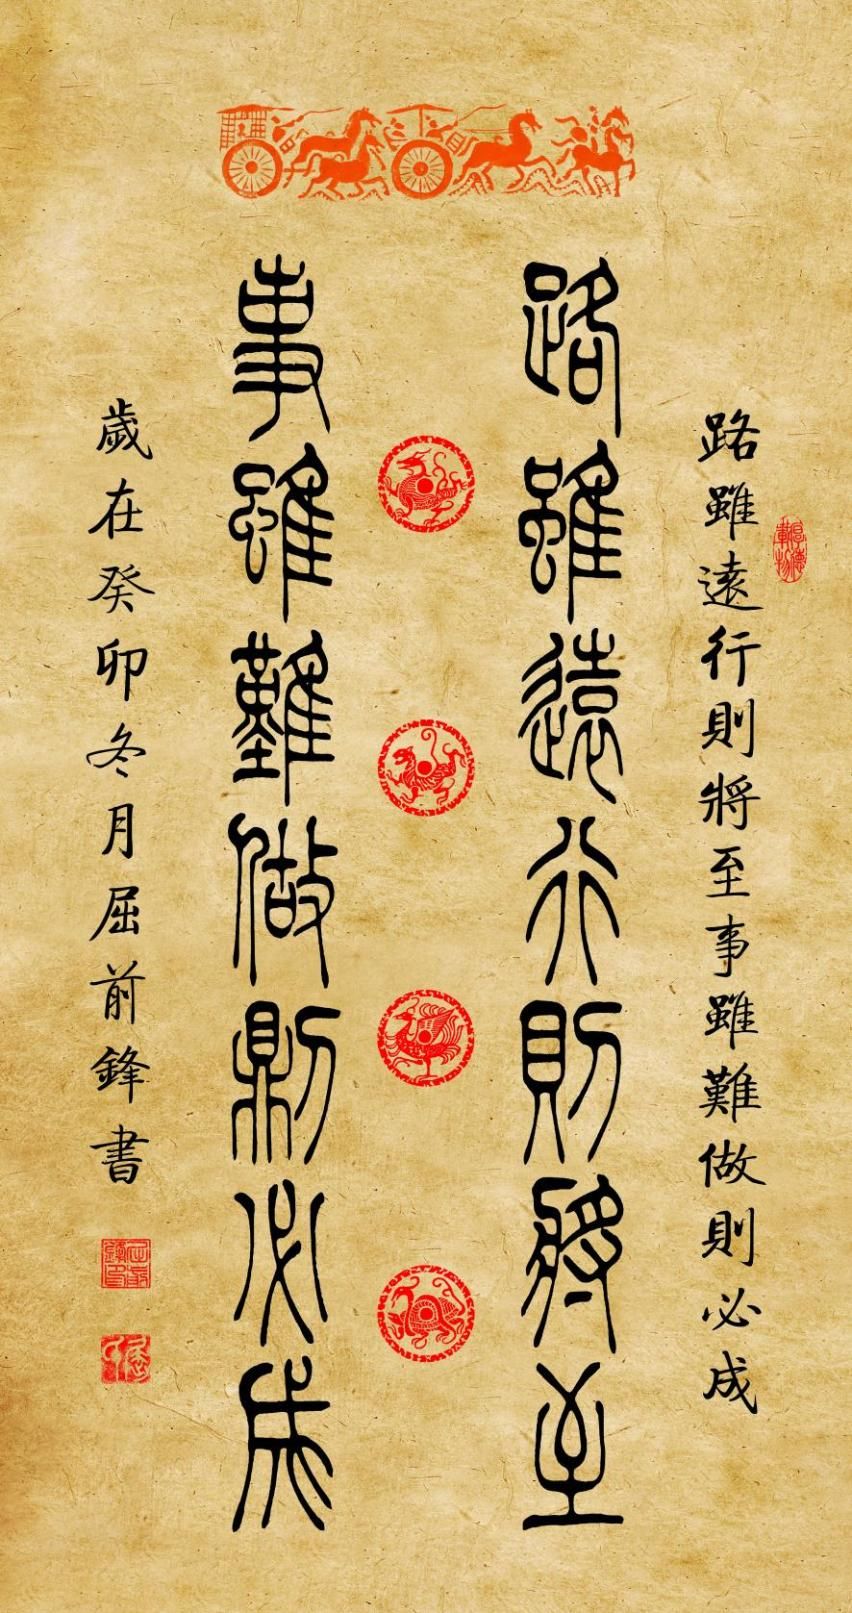 路雖遠行則將至事雖難做則必成
厚德載物
路雖遠行則將至
事雖難做則必成
歲在癸卯冬月屈前鋒書